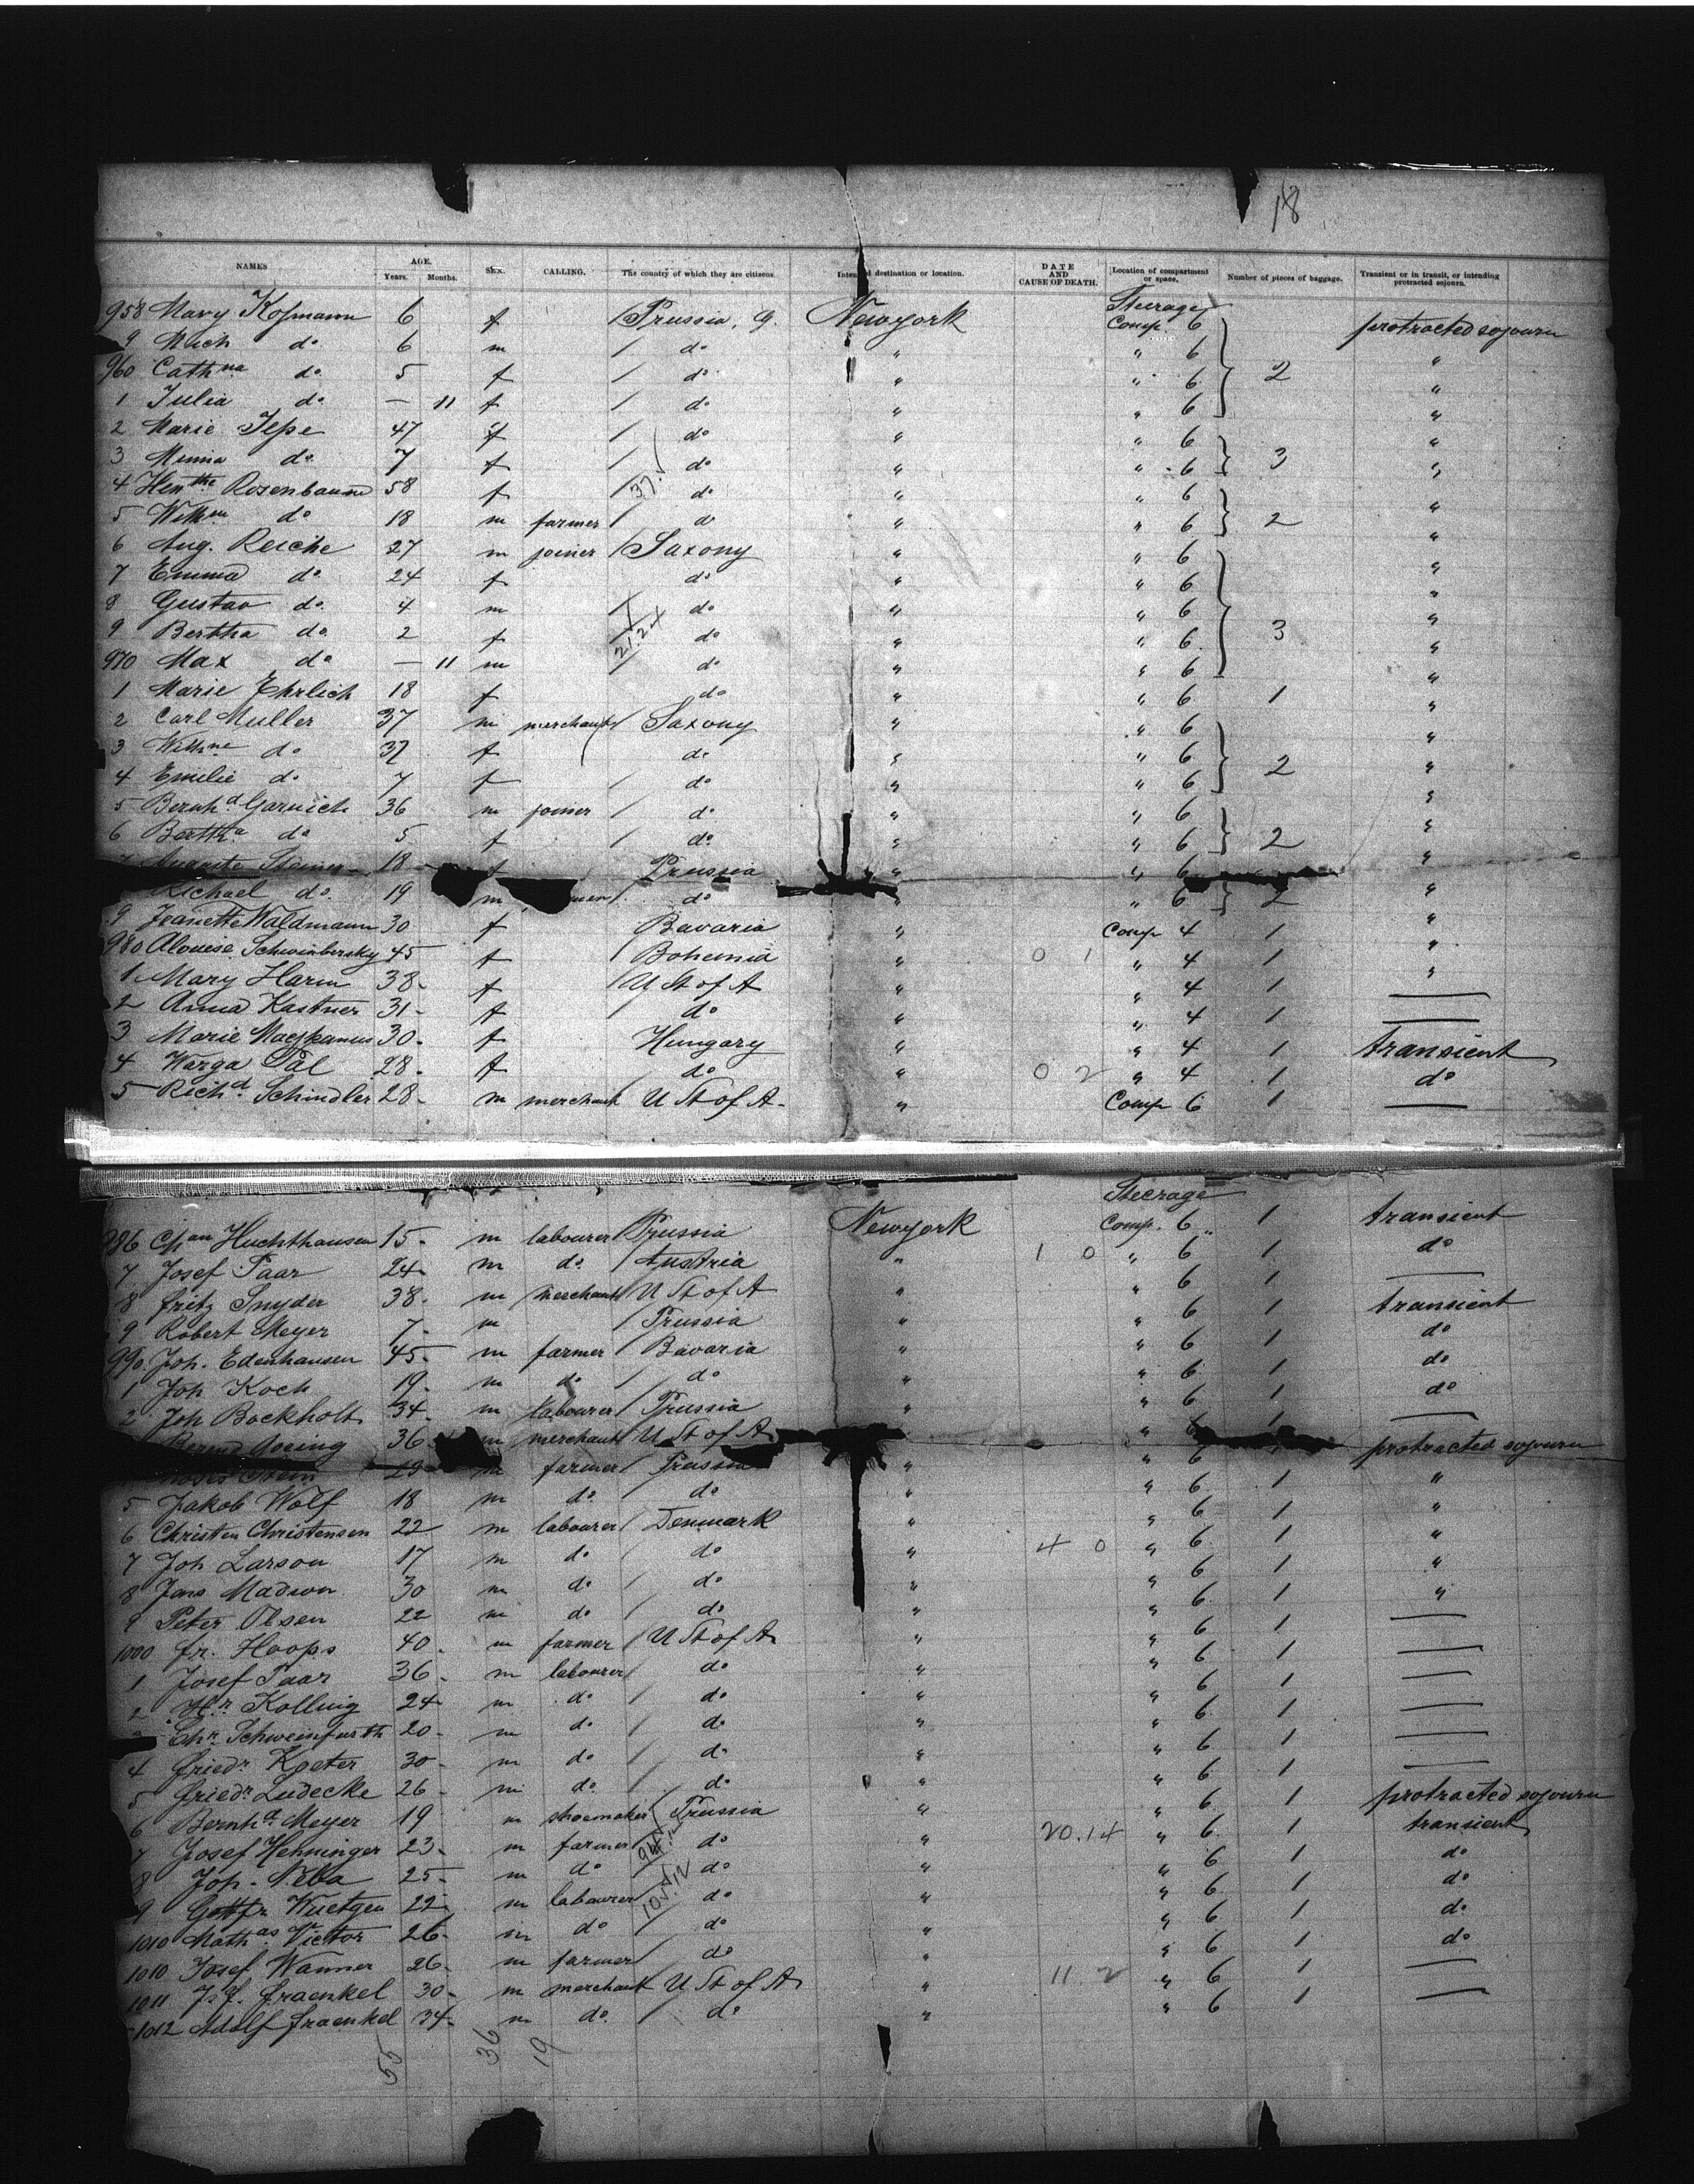 18
NAMES AGE. Years. Months. SEX. CALLING. The country of which they are citizens. Intended destination or location. DATE AND CAUSE OF DEATH. Location of compartment or space. Number of pieces of baggage. Transient or in transit, or intending protracted sojourn.
Steerage
958 Mary Kossmann 6 f Prussia, G. Newyork Comp. 6 protracted sojourn
9 Mich do 6 m do " " 6 "
960 Cathna do 5 f do " " 6 2 "
1 Julia do — 11 f do " " 6 "
2 Marie Jepe 47 f do " " 6 "
3 Minna do 7 f do " " 6 3 "
4 Henthe Rosenbaum 58 f do " " 6 "
5 Willm do 18 m farmer do " " 6 2 "
6 Aug. Reiche 27 m joiner Saxony " " 6 "
7 Emma do 24 f do " " 6 "
8 Gustav do 4 m do " " 6 "
9 Bertha do 2 f do " " 6 3 "
970 Max do — 11 m do " " 6 "
1 Marie Ehrlich 18 f do " " 6 1 "
2 Carl Muller 37 m merchant Saxony " " 6 "
3 Wilhne do 37 f do " " 6 2 "
4 Emilie do 7 f do " " 6 "
5 Bernhd Garnich 36 m joiner do " " 6 "
6 Bertha do 5 f do " " 6 2 "
7 Auguste 18 f Prussia " " 6 "
do 19 m do " " 6 2 "
9 Jeanette Waldmann 30 f Bavaria " Comp 4 1 "
980 Alouise Schwinbersky 45 f Bohemia " 0 1 " 4 1 "
1 Mary Harm 38 f U St of A " " 4 1 —
2 Anna Kastner 31 f do " " 4 1 —
3 Marie 30 f Hungary " " 4 1 transient
4 Warga Pal 28 f do " 0 2 " 4 1 do
5 Richd Schindler 28 m merchant U St of A " Comp 6 1 —
Steerage
986 Chan Huchthausen 15 m labourer Prussia Newyork Comp. 6 1 transient
7 Josef Paar 24 m do Austria " 1 0 " 6 1 do
8 Fritz Snyder 38 m merchant U St of A " " 6 1 —
9 Robert Meyer 7 m Prussia " " 6 1 transient
990 Joh. Edenhausen 45 m farmer Bavaria " " 6 1 do
1 Joh Koch 19 m do do " " 6 1 do
2 Joh Bockholt 34 m labourer Prussia " " 6 1 do
36 m merchant U St of A " 6 1 —
29 m farmer Prussia " " 6 protracted sojourn
5 Jakob Wolf 18 m do do " " 6 1 "
6 Christen Christensen 22 m labourer Denmark " " 6 1 "
7 Joh Larson 17 m do do " 4 0 " 6 1 "
8 Jens Madson 30 m do do " " 6 1 "
9 Peter Olsen 22 m do do " " 6 1 "
1000 Fr. Hoops 40 m farmer U St of A " " 6 1 —
1 Josef Paar 36 m labourer do " " 6 1 —
2 Hr. Kolling 24 m do do " " 6 1 —
3 Chr. Schweinfurth 20 m do do " " 6 1 —
4 Friedr. Koeter 30 m do do " " 6 1 —
5 Friedr. Ludecke 26 m do do " " 6 1 —
6 Bernhd Meyer 19 m shoemaker Prussia " " 6 1 protracted sojourn
7 Josef Hehninger 23 m farmer do " 20.14 " 6 1 transient
8 Joh. Nilla 25 m do do " " 6 1 do
9 Gottfr Wuetgen 22 m labourer do " " 6 1 do
1010 Mathas Victor 26 m do do " " 6 1 do
1010 Josef Wanner 26 m farmer do " " 6 1 do
1011 J. J. Fraenkel 30 m merchant U St of A " 11 2 " 6 1 —
1012 Adolf Fraenkel 34 m do do " " 6 1 —
55 36 19